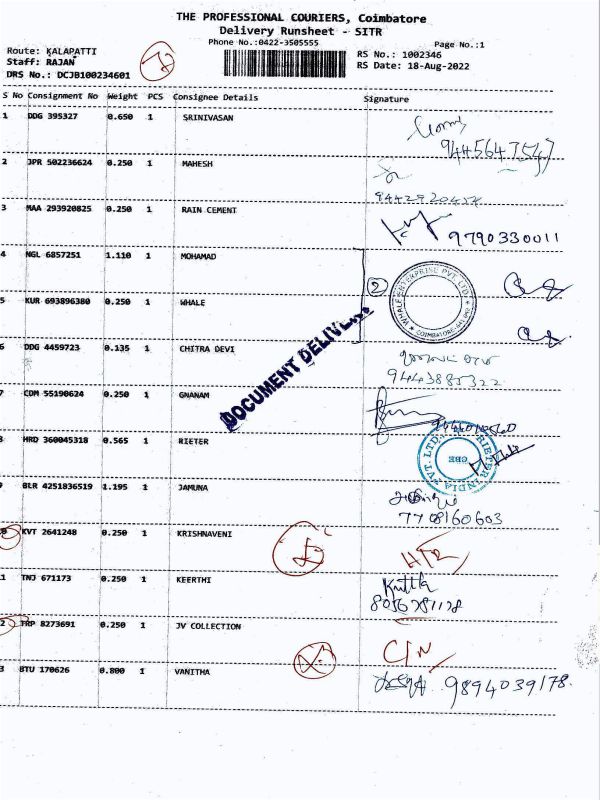 THE PROFESSIONAL COURIERS, Coimbatore
Delivery Runsheet - SITR
Phone No.:0422-3505555
Page No.:1
Route: KALAPATTI
Staff: RAJAN
DRS No.: DCJB100234601
RS No.: 1002346
RS Date: 18-Aug-2022
S No Consignment No Weight PCS Consignee Details Signature
1 DDG 395327 0.650 1 SRINIVASAN
2 JPR 502236624 0.250 1 MAHESH
3 MAA 293920825 0.250 1 RAIN CEMENT
9790330011
4 NGL 6857251 1.110 1 MOHAMAD
5 KUR 693896380 0.250 1 WHALE
2
WHALE ENTERPRISE PVT. LTD.
6 DDG 4459723 0.135 1 CHITRA DEVI
9443885322
DOCUMENT
7 CDM 55190624 0.250 1 GNANAM
8 HRD 360045318 0.565 1 RIETER
RIETER INDIA PVT. LTD.
CBE
9 BLR 4251836519 1.195 1 JAMUNA
7708160603
KVT 2641248 0.250 1 KRISHNAVENI
1 TNJ 671173 0.250 1 KEERTHI
2 TRP 8273691 0.250 1 JV COLLECTION
C/N
3 BTU 170626 0.800 1 VANITHA
9894039178.